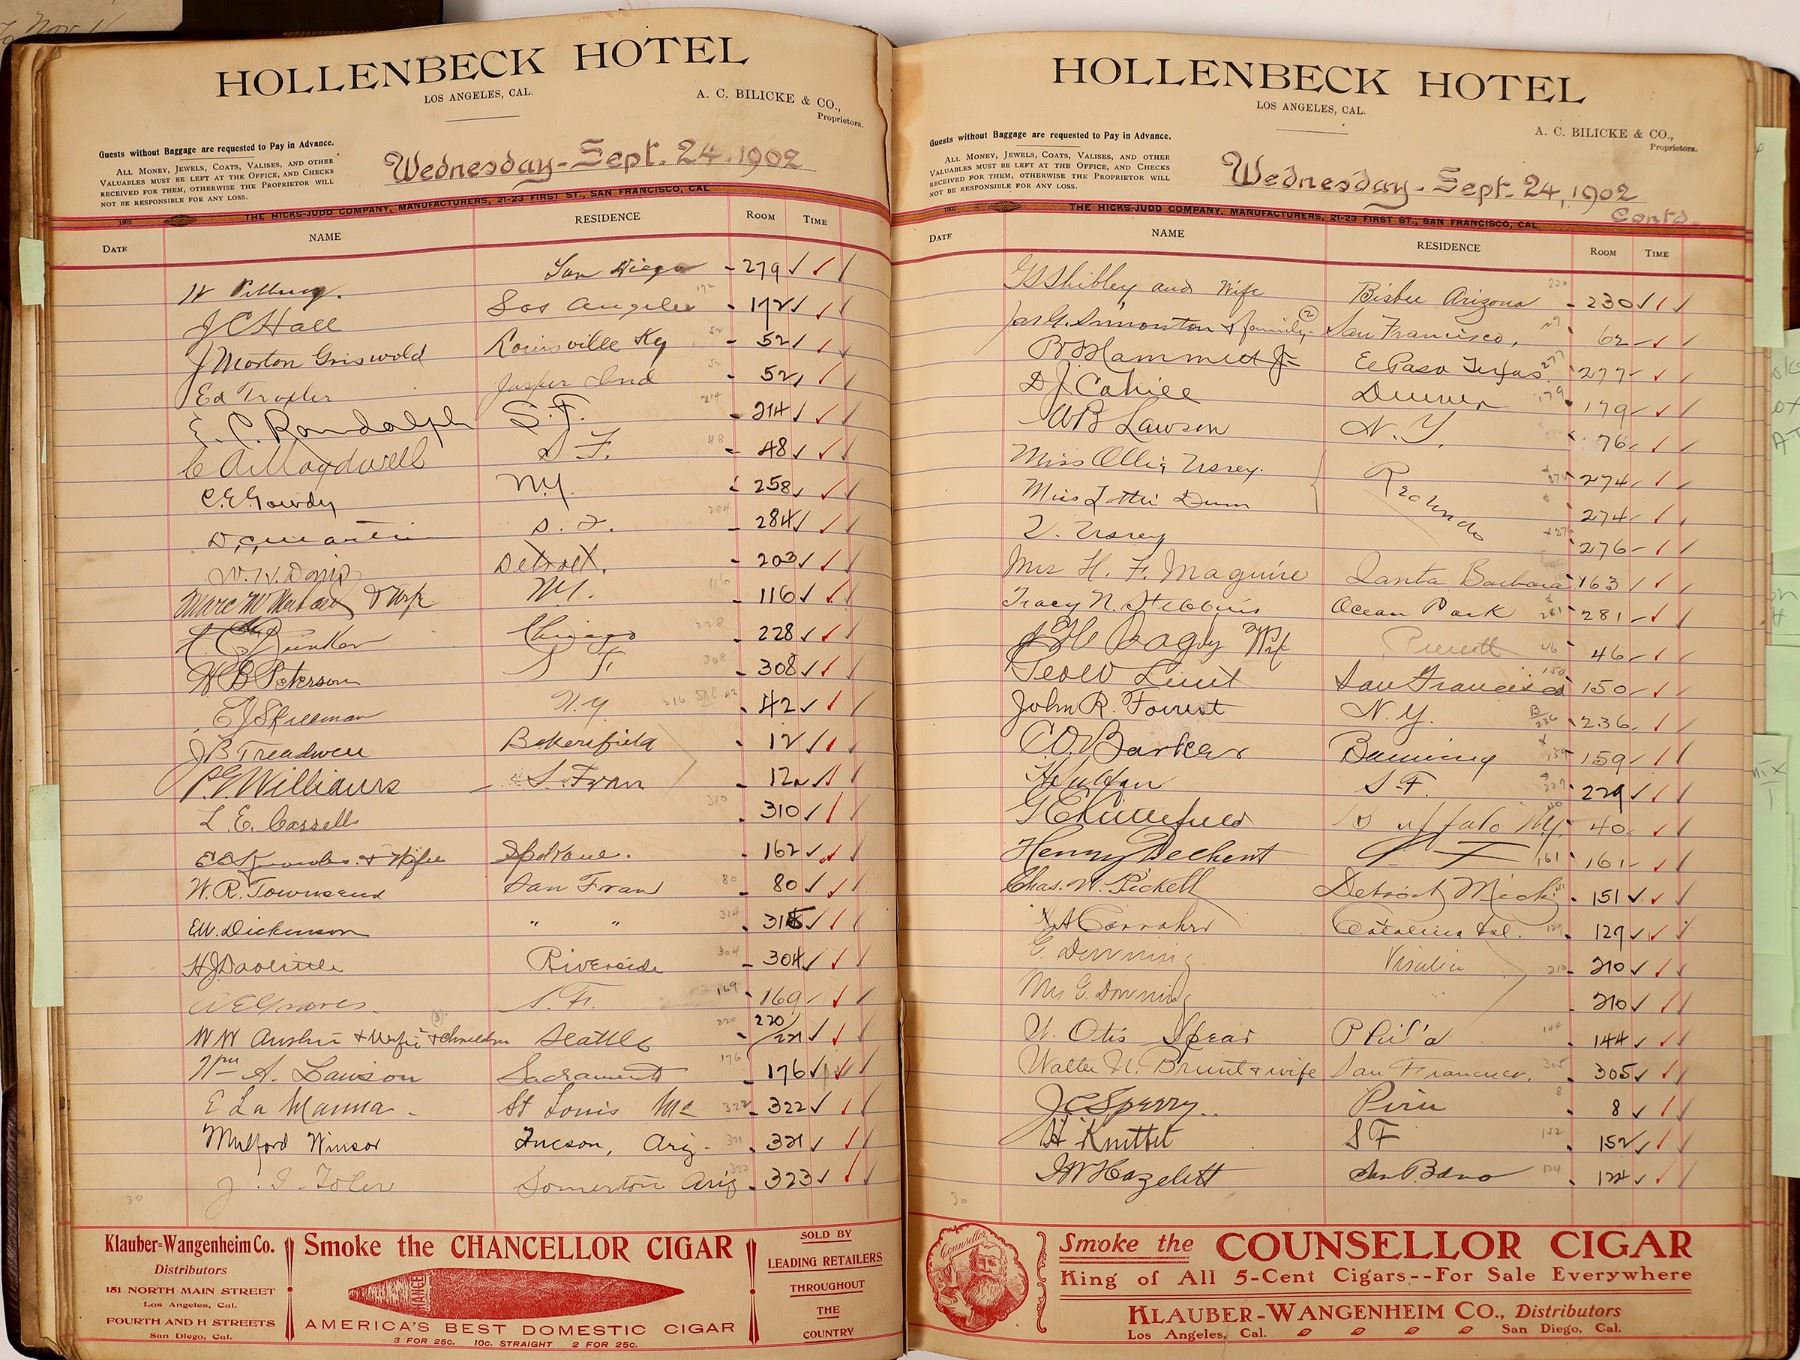 HOLLENBECK HOTEL
LOS ANGELES, CAL.
A. C. BILICKE & CO.,
Proprietors.
Guests without Baggage are requested to Pay in Advance.
ALL MONEY, JEWELS, COATS, VALISES, AND OTHER
VALUABLES MUST BE LEFT AT THE OFFICE, AND CHECKS
RECEIVED FOR THEM, OTHERWISE THE PROPRIETOR WILL
NOT BE RESPONSIBLE FOR ANY LOSS.
Wednesday - Sept. 24, 1902
1902 THE HICKS-JUDD COMPANY, MANUFACTURERS, 21-23 FIRST ST., SAN FRANCISCO, CAL
DATE NAME RESIDENCE ROOM TIME
San Diego 279
J C Hall Los Angeles 172
J Morton Griswold Louisville Ky 52
Ed Troxler Jasper Ind 52
E. C. Randolph S.F. 214
S F. 48
C. E. Gowdy N.Y. 258
D. C. Martin S. F. 284
Detroit. 203
& Wife N.Y. 116
Chicago 228
H B Peterson S F 308
E J Spillman N.Y. 42
J B Treadwell Bakersfield 12
P. G. Williams S. Fran 12
L. E. Cassell 310
& Wife Spokane. 162
W. R. Townsend San Fran 80
E W. Dickinson " " 315
H J Doolittle Riverside 304
A E Graves S. F. 169
W W Austin & Wife & Children Seattle 220/221
Wm A. Lawson Sacramento 176
E La Manna St Louis Mo 322
Mulford Winsor Tucson, Ariz. 321
J. I. Toler Somerton Ariz 323
30
Klauber-Wangenheim Co.
Distributors
151 NORTH MAIN STREET
Los Angeles, Cal.
FOURTH AND H STREETS
San Diego, Cal.
Smoke the CHANCELLOR CIGAR
AMERICA'S BEST DOMESTIC CIGAR
3 FOR 25c. 10c. STRAIGHT 2 FOR 25c.
SOLD BY
LEADING RETAILERS
THROUGHOUT
THE
COUNTRY
HOLLENBECK HOTEL
LOS ANGELES, CAL.
A. C. BILICKE & CO.,
Proprietors.
Guests without Baggage are requested to Pay in Advance.
ALL MONEY, JEWELS, COATS, VALISES, AND OTHER
VALUABLES MUST BE LEFT AT THE OFFICE, AND CHECKS
RECEIVED FOR THEM, OTHERWISE THE PROPRIETOR WILL
NOT BE RESPONSIBLE FOR ANY LOSS.
Wednesday - Sept. 24, 1902
Contd.
1902 THE HICKS-JUDD COMPANY, MANUFACTURERS, 21-23 FIRST ST., SAN FRANCISCO, CAL
DATE NAME RESIDENCE ROOM TIME
G S Shibley and Wife Bisbee Arizona 230
Jas G. Simonton & family San Francisco, 62
B Hammett Jr El Paso Texas 277
D J. Cahill Denver 179
W B Lawson N. Y. 76
Miss Ollie Usrey Redondo 274
Miss Lottie Dunn 274
V. Usrey 276
Mrs H. F. Maguire Santa Barbara 163
Tracy N. Stebbins Ocean Park 281
Wife Prescott 46
Geo W Lent San Francisco 150
John R. Forrest N. Y. 236
C O. Barker Banning 159
S. F. 229
G E Littlefield Buffalo N.Y. 40
Henry Dechent S F 161
Chas. W. Pickell Detroit Mich. 151
Catalina Isl. 129
E. Downing Visalia 210
Mrs E. Downing 210
Otis Spear Phil'a 144
Walter N. Brunt & wife San Francisco. 305
J C Sperry Piru 8
H Knittel S F 152
J W Hazelett San B.dno 124
30
Counsellor
Smoke the COUNSELLOR CIGAR
King of All 5-Cent Cigars--For Sale Everywhere
KLAUBER-WANGENHEIM CO., Distributors
Los Angeles, Cal. San Diego, Cal.